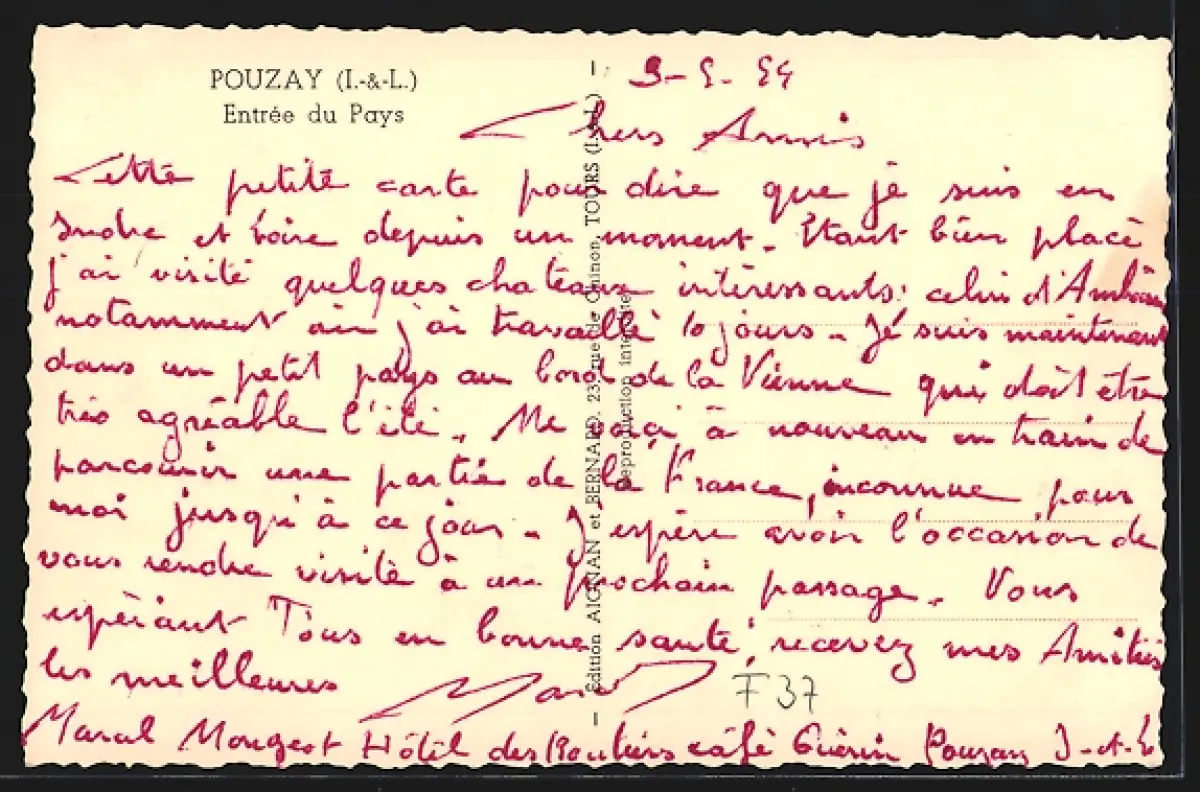 POUZAY (I.-&-L.)
Entrée du Pays
3-5-54
Chers Amis
Cette petite carte pour dire que je suis en
Indre et Loire depuis un moment. Étant bien placé
j'ai visité quelques chateaux intéressants: celui d'Amboise
notamment où j'ai travaillé 10 jours - Je suis maintenant
dans un petit pays au bord de la Vienne qui doit être
très agréable l'été. Me voici à nouveau en train de
parcourir une partie de la France, inconnue pour
moi jusqu'à ce jour - J'espère avoir l'occasion de
vous rendre visite à un prochain passage. Vous
espérant Tous en bonne santé, recevez mes Amitiés
les meilleures
F 37
Marcel Mougeot Hôtel des Routiers café Guérin Pouzay I-et-L
Édition AIGNAN et BERNARD, 23, rue de Chinon, TOURS (I.-&-L.)
Reproduction interdite